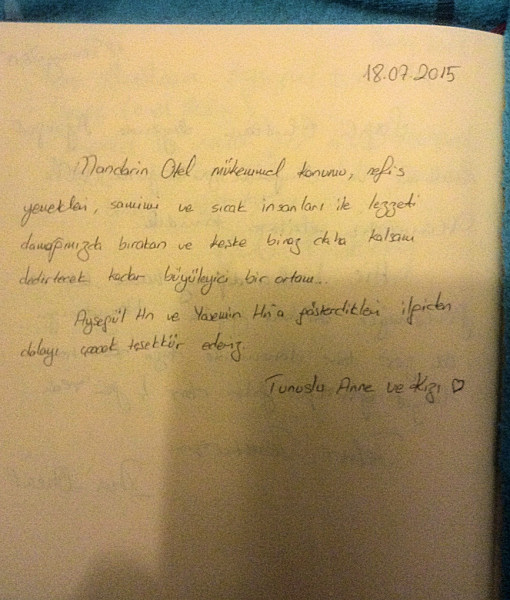 18.07.2015
Mandarin Otel mükemmel konumu, nefis
yemekleri, samimi ve sıcak insanları ile lezzeti
damağımızda bırakan ve keşke biraz daha kalsam
dedirtecek kadar büyüleyici bir ortam..
Ayşegül Hn ve Yasemin Hn'a gösterdikleri ilgiden
dolayı çoook teşekkür ederiz.
Tunuslu Anne ve Kızı ♡